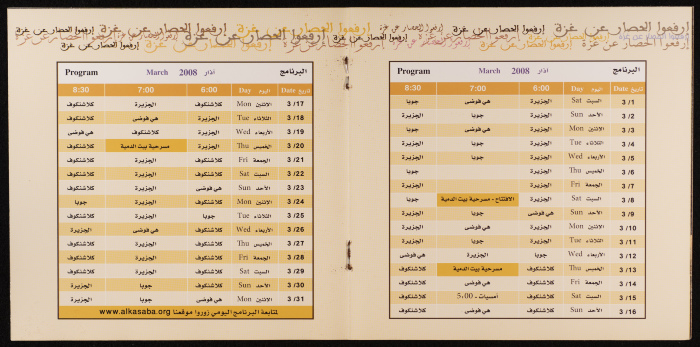 إرفعوا الحصار عن غزة إرفعوا الحصار عن غزة إرفعوا الحصار عن غزة إرفعوا الحصار عن غزة إرفعوا الحصار عن غزة إرفعوا الحصار عن غزة
إرفعوا الحصار عن غزة إرفعوا الحصار عن غزة إرفعوا الحصار عن غزة إرفعوا الحصار عن غزة إرفعوا الحصار عن غزة
إرفعوا الحصار عن غزة إرفعوا الحصار عن غزة إرفعوا الحصار عن غزة
البرنامج آذار 2008 March Program
تاريخ Date اليوم Day 6:00 7:00 8:30
3/1 السبت Sat الجزيرة هي فوضى جوبا
3/2 الأحد Sun الجزيرة جوبا الجزيرة
3/3 الاثنين Mon الجزيرة هي فوضى جوبا
3/4 الثلاثاء Tue الجزيرة جوبا الجزيرة
3/5 الأربعاء Wed الجزيرة جوبا جوبا
3/6 الخميس Thu الجزيرة جوبا
3/7 الجمعة Fri الجزيرة الجزيرة
3/8 السبت Sat الجزيرة الافتتاح - مسرحية بيت الدمية جوبا
3/9 الأحد Sun هي فوضى جوبا الجزيرة
3/10 الاثنين Mon الجزيرة هي فوضى الجزيرة
3/11 الثلاثاء Tue الجزيرة جوبا الجزيرة
3/12 الأربعاء Wed جوبا الجزيرة هي فوضى
3/13 الخميس Thu كلاشنكوف مسرحية بيت الدمية كلاشنكوف
3/14 الجمعة Fri كلاشنكوف هي فوضى كلاشنكوف
3/15 السبت Sat كلاشنكوف أمسيات - 5:00 كلاشنكوف
3/16 الأحد Sun كلاشنكوف جوبا كلاشنكوف
البرنامج آذار 2008 March Program
تاريخ Date اليوم Day 6:00 7:00 8:30
3/17 الاثنين Mon كلاشنكوف الجزيرة كلاشنكوف
3/18 الثلاثاء Tue الجزيرة هي فوضى كلاشنكوف
3/19 الأربعاء Wed الجزيرة كلاشنكوف هي فوضى
3/20 الخميس Thu الجزيرة مسرحية بيت الدمية كلاشنكوف
3/21 الجمعة Fri كلاشنكوف الجزيرة كلاشنكوف
3/22 السبت Sat كلاشنكوف الجزيرة كلاشنكوف
3/23 الأحد Sun هي فوضى الجزيرة كلاشنكوف
3/24 الاثنين Mon كلاشنكوف الجزيرة جوبا
3/25 الثلاثاء Tue جوبا الجزيرة كلاشنكوف
3/26 الأربعاء Wed هي فوضى كلاشنكوف الجزيرة
3/27 الخميس Thu كلاشنكوف الجزيرة كلاشنكوف
3/28 الجمعة Fri كلاشنكوف الجزيرة كلاشنكوف
3/29 السبت Sat كلاشنكوف الجزيرة كلاشنكوف
3/30 الأحد Sun كلاشنكوف جوبا الجزيرة
3/31 الاثنين Mon هي فوضى جوبا كلاشنكوف
لمتابعة البرنامج اليومي زوروا موقعنا www.alkasaba.org